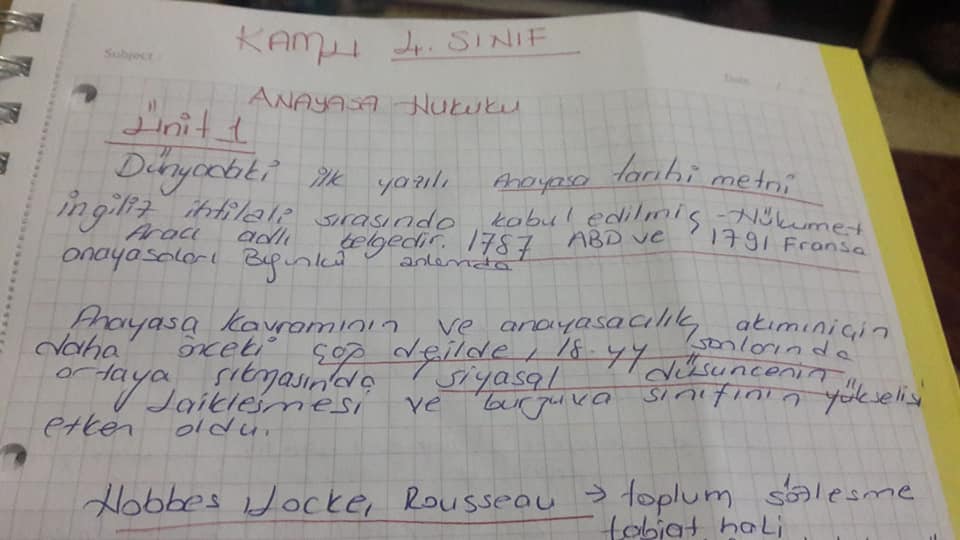 Subject:
Date
KAMU 4. SINIF
ANAYASA HUKUKU
Ünit 1
Dünyadaki ilk yazılı Anayasa tarihi metni
ingiliz ihtilali sırasında kabul edilmiş Hükumet
Aracı adlı belgedir. 1787 ABD ve 1791 Fransa
anayasaları Bgünkü anlamda
Anayasa kavramının ve anayasacılık akımınıniçin
daha önceki çağ değilde, 18. yy sonlarında
ortaya çıkmasında siyasal düsuncenin
laiklesmesi ve burjuva sınıfının yükselişi
etken oldu.
Hobbes Locke, Rousseau → toplum sözlesme
tabiat hali